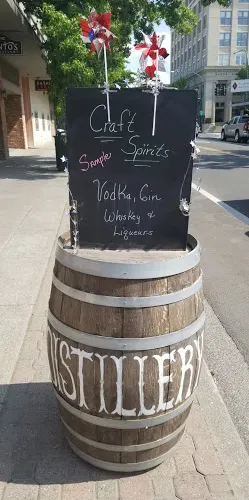 Craft
Spirits
Sample
Vodka, Gin
Whiskey &
Liqueurs
DISTILLERY